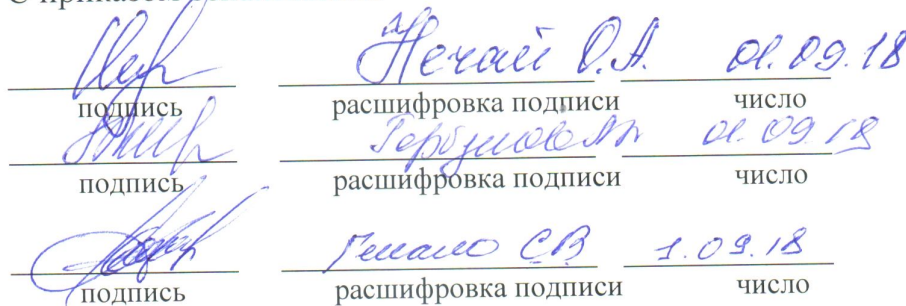 С приказом
Нечай О.А. 01.09.18
подпись расшифровка подписи число
01.09.18
подпись расшифровка подписи число
СВ 1.09.18
подпись расшифровка подписи число